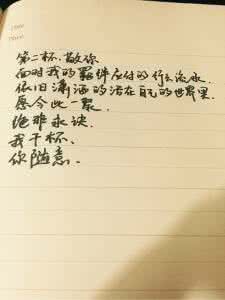 第二杯、敬你
面对我的羁绊应付的行云流水.
依旧潇洒的活在自己的世界里.
愿今此一聚.
绝非永诀.
我干杯、
你随意.